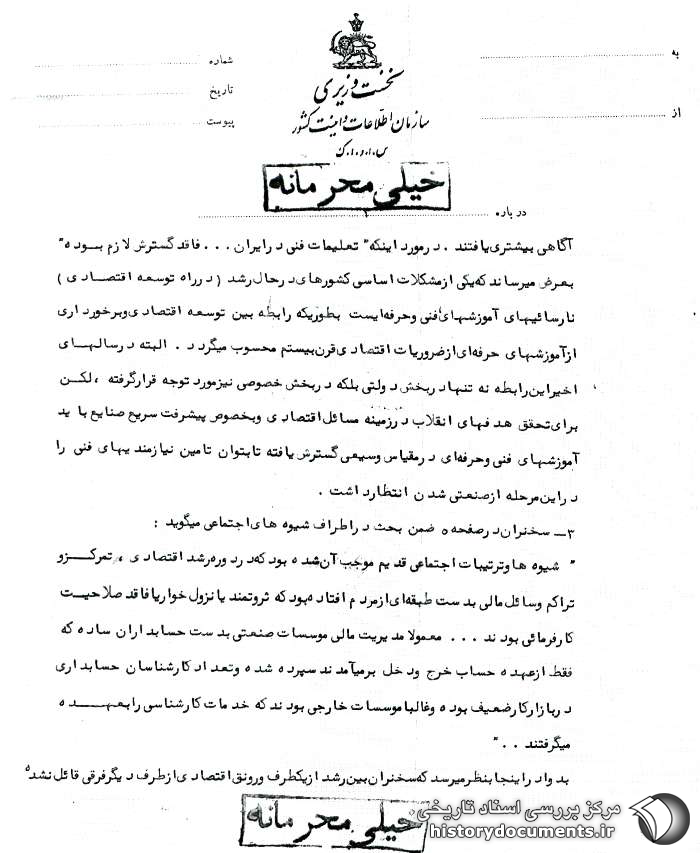 به
شماره
نخست وزیری
تاریخ
از
سازمان اطلاعات و امنیت کشور
پیوست
س.ا.و.ا.ک
خیلی محرمانه
درباره
آگاهی بیشتری یافتند . در مورد اینکه " تعلیمات فنی در ایران ... فاقد گسترش لازم بوده "
بعرض میرساند که یکی از مشکلات اساسی کشورهای در حال رشد ( در راه توسعه اقتصادی )
نارسائیهای آموزشهای فنی و حرفه ایست بطوریکه رابطه بین توسعه اقتصادی و برخورداری
از آموزشهای حرفه ای از ضروریات اقتصادی قرن بیستم محسوب میگردد . البته در سالهای
اخیر این رابطه نه تنها در بخش دولتی بلکه در بخش خصوصی نیز مورد توجه قرار گرفته ، لکن
برای تحقق هدفهای انقلاب در زمینه مسائل اقتصادی و بخصوص پیشرفت سریع صنایع باید
آموزشهای فنی و حرفه ای در مقیاس وسیعی گسترش یافته تا بتوان تامین نیازمندیهای فنی را
در این مرحله از صنعتی شدن انتظار داشت .
۳ـ سخنران در صفحه ۵ ضمن بحث در اطراف شیوه های اجتماعی میگوید :
" شیوه ها و ترتیبات اجتماعی قدیم موجب آن شده بود که در دوره رشد اقتصادی ، تمرکز و
تراکم وسائل مالی بدست طبقه ای از مردم افتاده بود که ثروتمند یا نزول خوار یا فاقد صلاحیت
کارفرمائی بودند ... معمولا مدیریت مالی موسسات صنعتی بدست حسابداران ساده که
فقط از عهده حساب خرج و دخل برمیآمدند سپرده شده و تعداد کارشناسان حسابداری
در بازار کار ضعیف بوده و غالبا موسسات خارجی بودند که خدمات کارشناسی را بعهده
میگرفتند .. "
بدوا در اینجا بنظر میرسد که سخنران بین رشد از یکطرف و رونق اقتصادی از طرف دیگر فرقی قائل نشده
خیلی محرمانه
مرکز بررسی اسناد تاریخی
historydocuments.ir